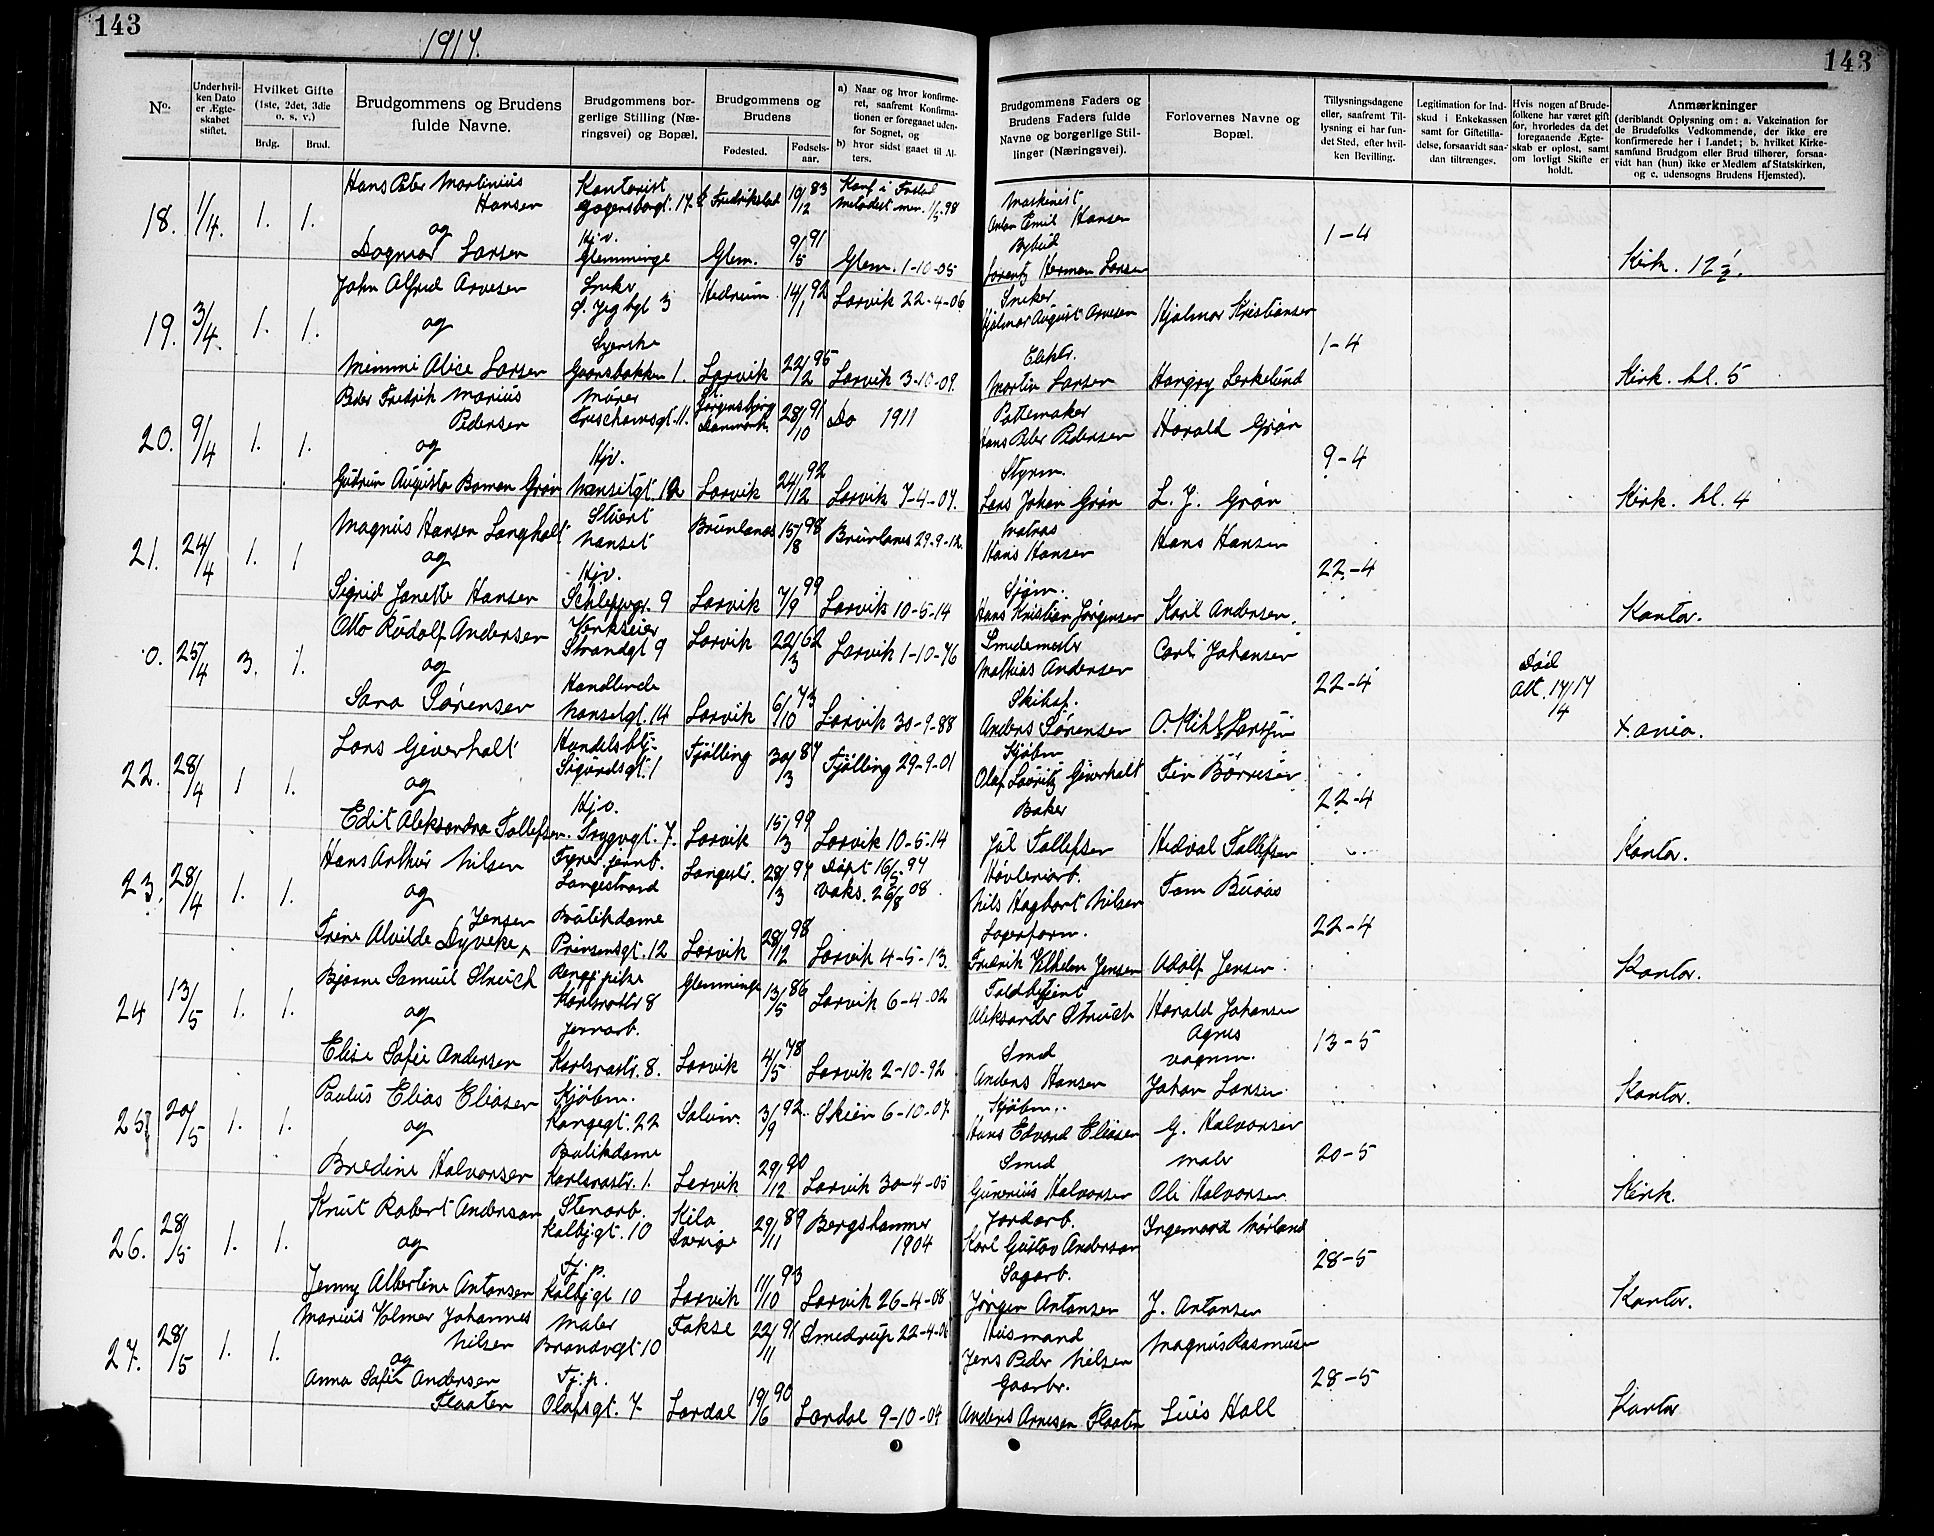 143
1917.
143
No.
Under hvilken Dato er Ægteskabet stiftet.
Hvilket Gifte (1ste, 2det, 3die o. s. v.)
Brdg.
Brud.
Brudgommens og Brudens fulde Navne.
Brudgommens borgerlige Stilling (Næringsvei) og Bopæl.
Brudgommens og Brudens
Fødested.
Fødselsaar.
a) Naar og hvor konfirmeret, saafremt Konfirmationen er foregaaet udenfor Sognet, og
b) hvor sidst gaaet til Alters.
Brudgommens Faders og Brudens Faders fulde Navne og borgerlige Stillinger (Næringsvei).
Forlovernes Navne og Bopæl.
Tillysningsdagene eller, saafremt Tillysning ei har fundet Sted, efter hvilken Bevilling.
Legitimation for Indskud i Enkekassen samt for Giftetilladelse, forsaavidt saadan tiltrænges.
Hvis nogen af Brudefolkene har været gift før, hvorledes da det foregaaende Ægteskab er opløst, samt om lovligt Skifte er holdt.
Anmærkninger
(deriblandt Oplysning om: a. Vakcination for de Brudefolks Vedkommende, der ikke ere konfirmerede her i Landet; b. hvilket Kirkesamfund Brudgom eller Brud tilhører, forsaavidt han (hun) ikke er Medlem af Statskirken, og c. udensogns Brudens Hjemsted).
18. 1/4. 1. 1.
Hans Peter Martinius Hansen
Kontorist
Fredrikstad 19/12 83
Maskinist
Anton Emil Hansen
og
Dagmar Larsen
Hjv.
Glemminge
Glem. 9/5 91 Glem. 1-10-05
Bybud
Lorentz Herman Larsen
1-4
Kirk. 12 1/2.
19. 3/4. 1. 1.
John Alfred Arvesen
Snekr
Hedrum 14/1 92 Larvik 22-4-06
Sneker
Hjalmar August Arvesen
Hjalmar Kristiansen
og
Mimmi Alice Larsen
Syerske
Larvik 22/2 95 Larvik 3-10-09.
Martin Larsen
1-4
Kirk. kl. 5
20. 9/4 1. 1.
Peder Fredrik Marius Pedersen
Murer
Danmark 28/10 91 Do 1911
Pottemaker
Hans Peder Pedersen
Harald Grøn
og
Gudrun Augusta Bomen Grøn
Hjv.
Nansetgt. 12
Larvik 24/12 92 Larvik 7-4-07.
Styrm.
Lars Johan Grøn
L. J. Grøn
9-4
Kirk. kl. 4
21. 24/4 1. 1
Magnus Hansen Langholt
Stuert
Nanset
Brunlanes 15/8 98 Brunlanes 29-9-12.
Matros
Hans Hansen
Hans Hansen
og
Sigrid Janette Hansen
Hjv.
Larvik 7/9 99 Larvik 10-5-14
Sjøm.
Hans Kristian Jørgensen
Karl Andersen.
22-4
Kontor.
0. 25/4 3. 1.
Otto Rudolf Andersen
Verkseier
Strandgt 9
Larvik 22/3 62 Larvik 1-10-76
Smedemester
Mathias Andersen
Carl Johansen
og
Sara Sørensen
Handlende
Nansetgt. 14
Larvik 6/10 73 Larvik 30-9-88
Skibsf.
Anders Sørensen
22-4
Død
14
X.ania.
22. 28/4 1 1.
Lars Giverholt
Handelsbtj.
Sigurdsgt. 1
Tjølling 30/3 87 Tjølling 29-9-01
Kjøbm.
Olaf Lauritz Giverholt
Finn Børresen
og
Edit Aleksandra Tollefsen.
Hjv.
Trygvgt. 7.
Larvik 15/3 99 Larvik 10-5-14
Baker
Jul Tollefsen
Hedval Tollefsen
22-4
Kontor.
23. 28/4 1. 1.
Hans Arthur Nilsen
Langestrand
Langestr. 28/3 94 Døpt 16/5-94
Vaks. 26/8 08.
Høvleriarb.
Nils Hagbart Nilsen
Tom Buaas
og
Irene Alvilde Dyveke Jensen
Butikdame
Prinsensgt. 12
Larvik 28/12 98 Larvik 4-5-13.
Fredrik Vilhelm Jensen
Adolf Jensen.
22-4
Kontor.
24 13/5 1. 1.
Bjarne Samuel Struch
Karlsrostr 8
Glemminge 13/5 86 Larvik 6-4-02
Toldbetjent
Aleksander Struch
Harald Johansen
og
Elise Sofie Andersen
Jernarb.
Karlsrostr. 8.
Larvik 4/5 78 Larvik 2-10-92
Smed
Anders Hansen
Agnes
13-5
Johan Larsen
Kontor.
25 20/5 1. 1.
Paulus Elias Eliasen
Kjøbm.
Kongegt. 22
3/9 92. Skien 6-10-07.
Kjøbm.
Hans Edvard Eliasen
G. Halvorsen
Maler
og
Bredine Halvorsen
Butikdame
Karlsrostr. 1.
Larvik 29/12 90 Larvik 30-4-05
Smed
Gunerius Halvorsen
Ole Halvorsen.
20-5
Kirk.
26. 28/5 1. 1.
Knut Robert Anderson
Stenarb.
Kolbjgt. 10
Kila
Sverige
29/11 89 Bergshammer 1904
Jordarb.
Karl Gustav Anderson
Ingemard Nørland
og
Jenny Albertine Antonsen
Tj.p.
Kolbjgt 10
Larvik 11/10 93 Larvik 26-4-08
Sagarb.
Jørgen Antonsen
J. Antonsen
28-5
Kontor.
27. 28/5 1. 1.
Marius Volmer Johannes Nilsen
Maler
Brandvgt 10
Fakse 22/11 91 Smedrup 22-4-06
Husmand
Jens Peder Nilsen
Magnus Rasmusen
og
Anna Sofie Andersen Flaaten
Tj.p.
Olafsgt. 7.
Lardal 19/6 90 Lardal 9-10-04
Gaarbr.
Anders Arnesen Flaaten
Luis Hall
28-5
Kontor